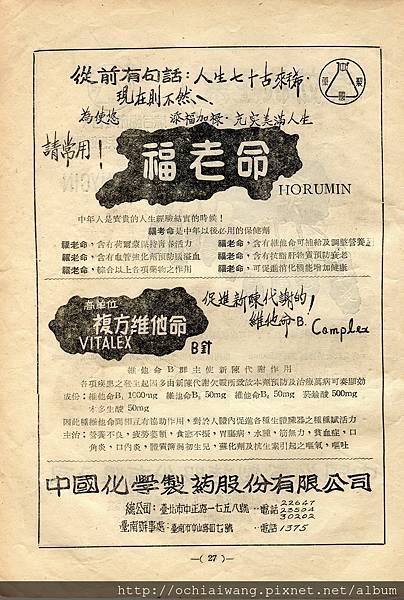 從前有句話：人生七十古來稀．
現在則不然、
為使您 添福加祿．充实美滿人生
請常用！
福老命
HORUMIN
中年人是寶貴的人生經驗結實的時候！
福老命是中年以後必用的保健劑
福老命，含有荷爾蒙保持青春活力 福老命，含有維他命可補給及調整營養
福老命，含有血管強化劑預防腦溢血 福老命，含有抗脂肝物質預防衰老
福老命，綜合以上各項藥物之作用 福老命，可促進消化機能增加健康
高單位
複方維他命
VITALEX
B針
促進新陳代謝的！
維他命-B. Complex
維他命B群主使新陳代謝作用
各項疾患之發生起因多由新陳代謝欠暢所致故本劑預防及治療萬病可奏顯効
成份：維他命B₁ 1000mg 維他命B₂ 50mg 維他命B₆ 50mg 菸鹼酸 500mg
本多生酸 50mg
因此種維他命間相互有協助作用，對於人體內促進各種生體臟器之種種賦活力
主治：營養不良，疲勞萎頓，食慾不振，胃腸病，水腫，筋無力，貧血症，口
角炎，口內炎，體質薄弱初生兒，蘇化劑及抗生素引起之嘔氣，嘔吐
中國化學製葯股份有限公司
總公司：臺北市中正路一七五八號 電話 22647
23504
30202
臺南辦事處：臺南市中山路四七號 電話 1375
—( 27 )—
http://ochiaiwang.pixnet.net/album